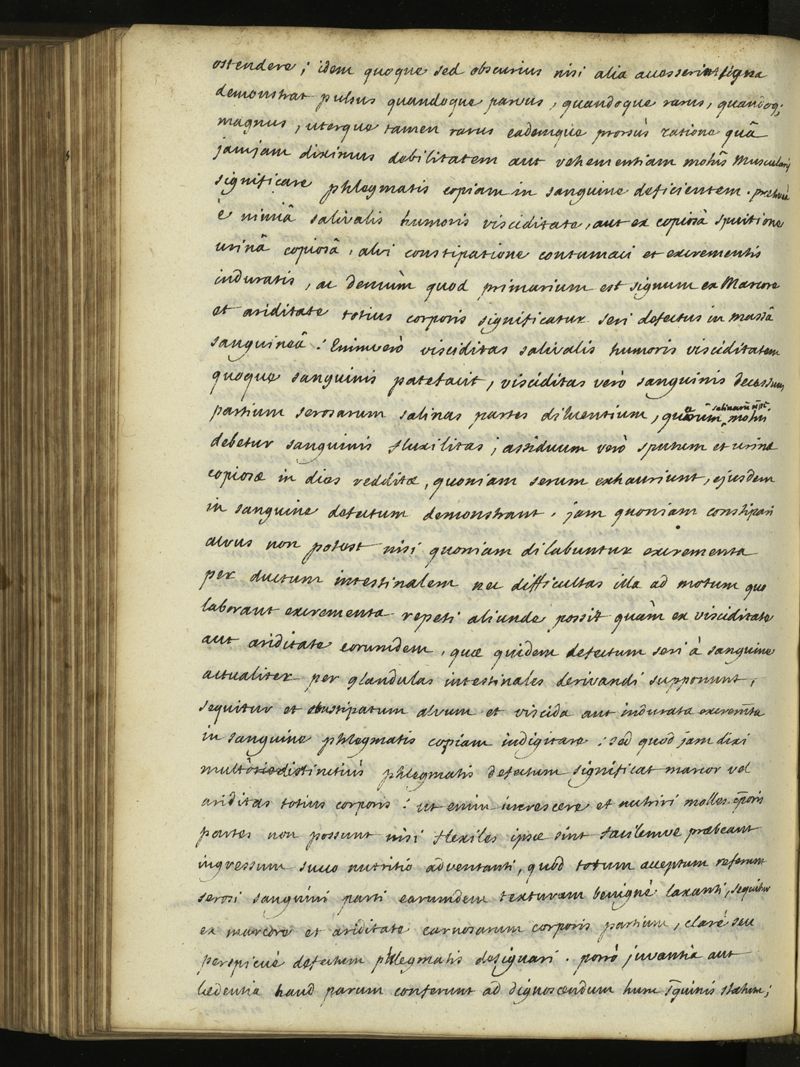 ostendere; idem quoque sed obscurius nisi alia accesserint signa
demonstrat pulsus quandoque parvus, quandoque rarus, quandoq;
magnus, uterque tamen rarus eademque prorsùs ratione quâ
jamjam diximus debilitatem aut vehementiam motûs muscularis
significare phlegmatis copiam in sanguine deficientem. prætereà
è nimiâ salivalis humoris visciditate, aut ex copiosâ sputitione
urinâ copiosâ, alvi constipatione contumaci et excrementis
induratis, ac demùm quod primarium est signum ex Marcore
et ariditate totius corporis significatur seri defectus in massâ
sanguineâ: Enimverò visciditas salivalis humoris visciditatem
quoque sanguinis patefacit, visciditas verò sanguinis decessum
partium serosarum salinas partes diluentium, quarum motui
debetur sanguinis fluxilitas; assiduum verò sputum et urinæ
copiosæ in dies redditæ, quoniam serum exhauriunt, ejusdem
in sanguine defectum demonstrant. jam quoniam constipari
alvus non potest nisi quoniam dilabuntur excrementa
per ductum intestinalem nec difficultas illa ad motum quo
laborant excrementa repeti aliunde possit quàm ex visciditate
aut ariditate eorumdem, quæ quidem defectum seri à sanguine
actualiter per glandulas intestinales derivandi supponunt,
sequitur et obstipatum alvum et viscida aut indurata excrem̄ta
in sanguine phlegmatis copiam indigitare: sed quod jam dixi
distinctiùs phlegmatis defectum significat marcor vel
ariditas totius corporis: ut enim increscere et nutriri molles c̄poris
partes non possunt nisi flexiles ipsæ sint facilemve præbeant
ingressum succo nutritio adventanti, quod totum acceptum referunt
serosi sanguini parti earumdem texturam benignè laxanti, sequitur
ex marcore et ariditate carnosarum corporis partium, clarè seu
perspicuè defectum phlegmatis designari. porrò juvantia aut
lædentia haud parum conferunt ad dignoscendum hunc s̄guinis statum;